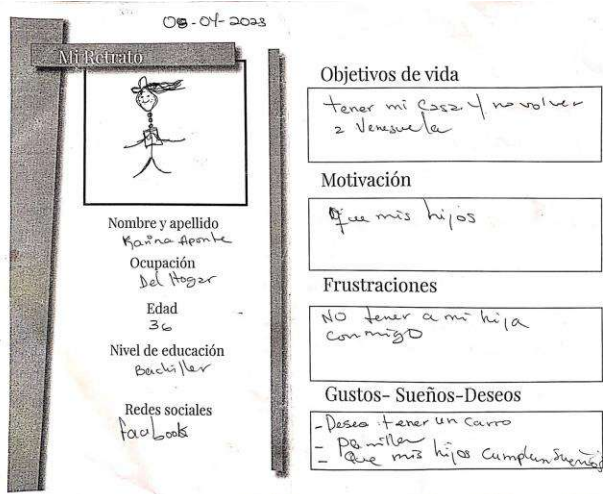 08-04-2023
Mi Retrato
Nombre y apellido
Karina Aponte
Ocupación
Del Hogar
Edad
36
Nivel de educación
Bachiller
Redes sociales
facbook
Objetivos de vida
tener mi casa y no volver
a Venezuela
Motivación
Que mis hijos
Frustraciones
NO tener a mi hija
conmigo
Gustos- Sueños-Deseos
- Deseo tener un carro
-
- Que mis hijos cumplan sueños